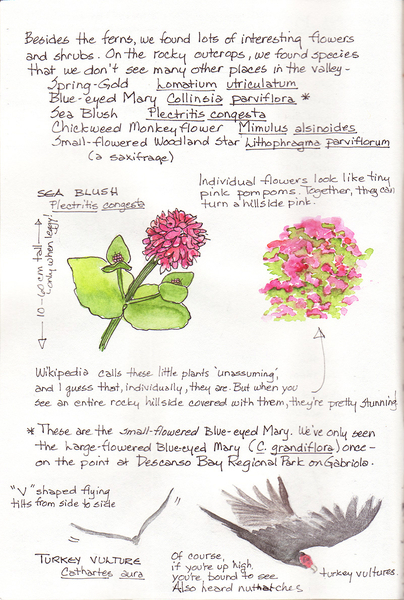 Besides the ferns, we found lots of interesting flowers
and shrubs. On the rocky outcrops, we found species
that we don't see many other places in the valley-
Spring-Gold Lomatium utriculatum
Blue-eyed Mary Collinsia parviflora *
Sea Blush Plectritis congesta
Chickweed Monkeyflower Mimulus alsinoides
Small-flowered Woodland Star Lithophragma parviflorum
(a saxifrage)
SEA BLUSH
Plectritis congesta
10-60 cm tall
-only when leggy!
Individual flowers look like tiny
pink pompoms. Together, they can
turn a hillside pink.
Wikipedia calls these little plants 'unassuming',
and I guess that, individually, they are. But when you
see an entire rocky hillside covered with them, they're pretty stunning
* These are the small-flowered Blue-eyed Mary. We've only seen
the Large-flowered Blue-eyed Mary (C. grandiflora) once-
on the point at Descanso Bay Regional Park on Gabriola.
"V" shaped flying
tilts from side to side
TURKEY VULTURE
Cathartes aura
Of course,
if you're up high,
you're bound to see
turkey vultures.
Also heard nuthatches